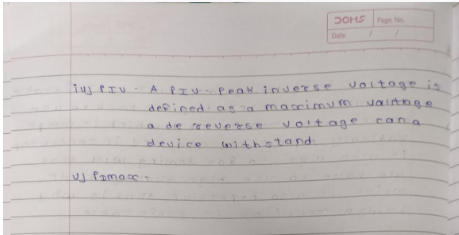 JOMS Page No.
Date / /
iv) PIV - A PIV - Peak inverse voltage is
defined as a maximum valtage
a de reverse voltage can a
device withstand.
v) PDmax -